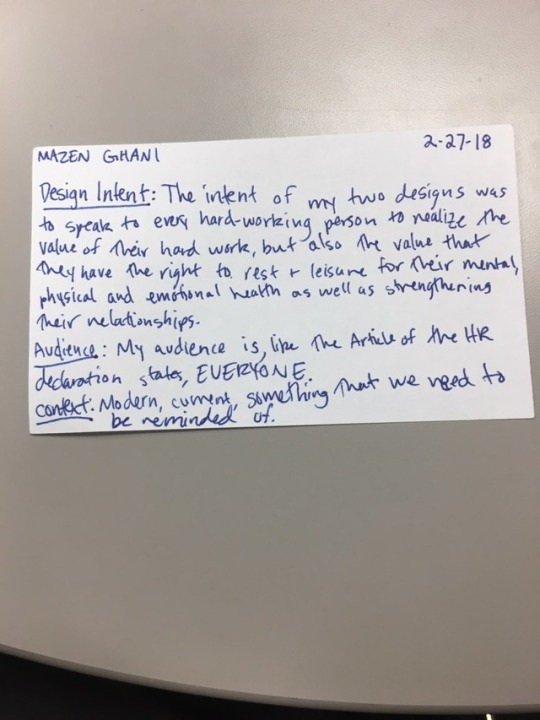 MAZEN GHANI
2-27-18
Design Intent: The intent of my two designs was
to speak to every hard-working person to realize the
value of their hard work, but also the value that
they have the right to rest + leisure for their mental,
physical and emotional health as well as strengthening
their relationships.
Audience: My audience is, like the Article of the HR
declaration states, EVERYONE.
context: Modern, current, something that we need to
be reminded of.